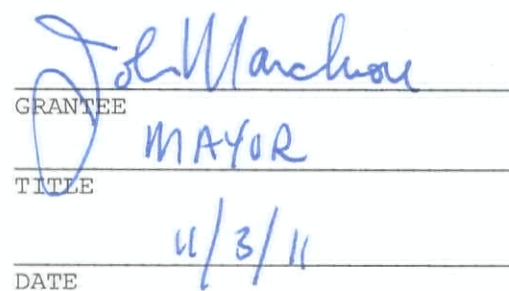 John Marchione
GRANTEE
MAYOR
TITLE
11/3/11
DATE